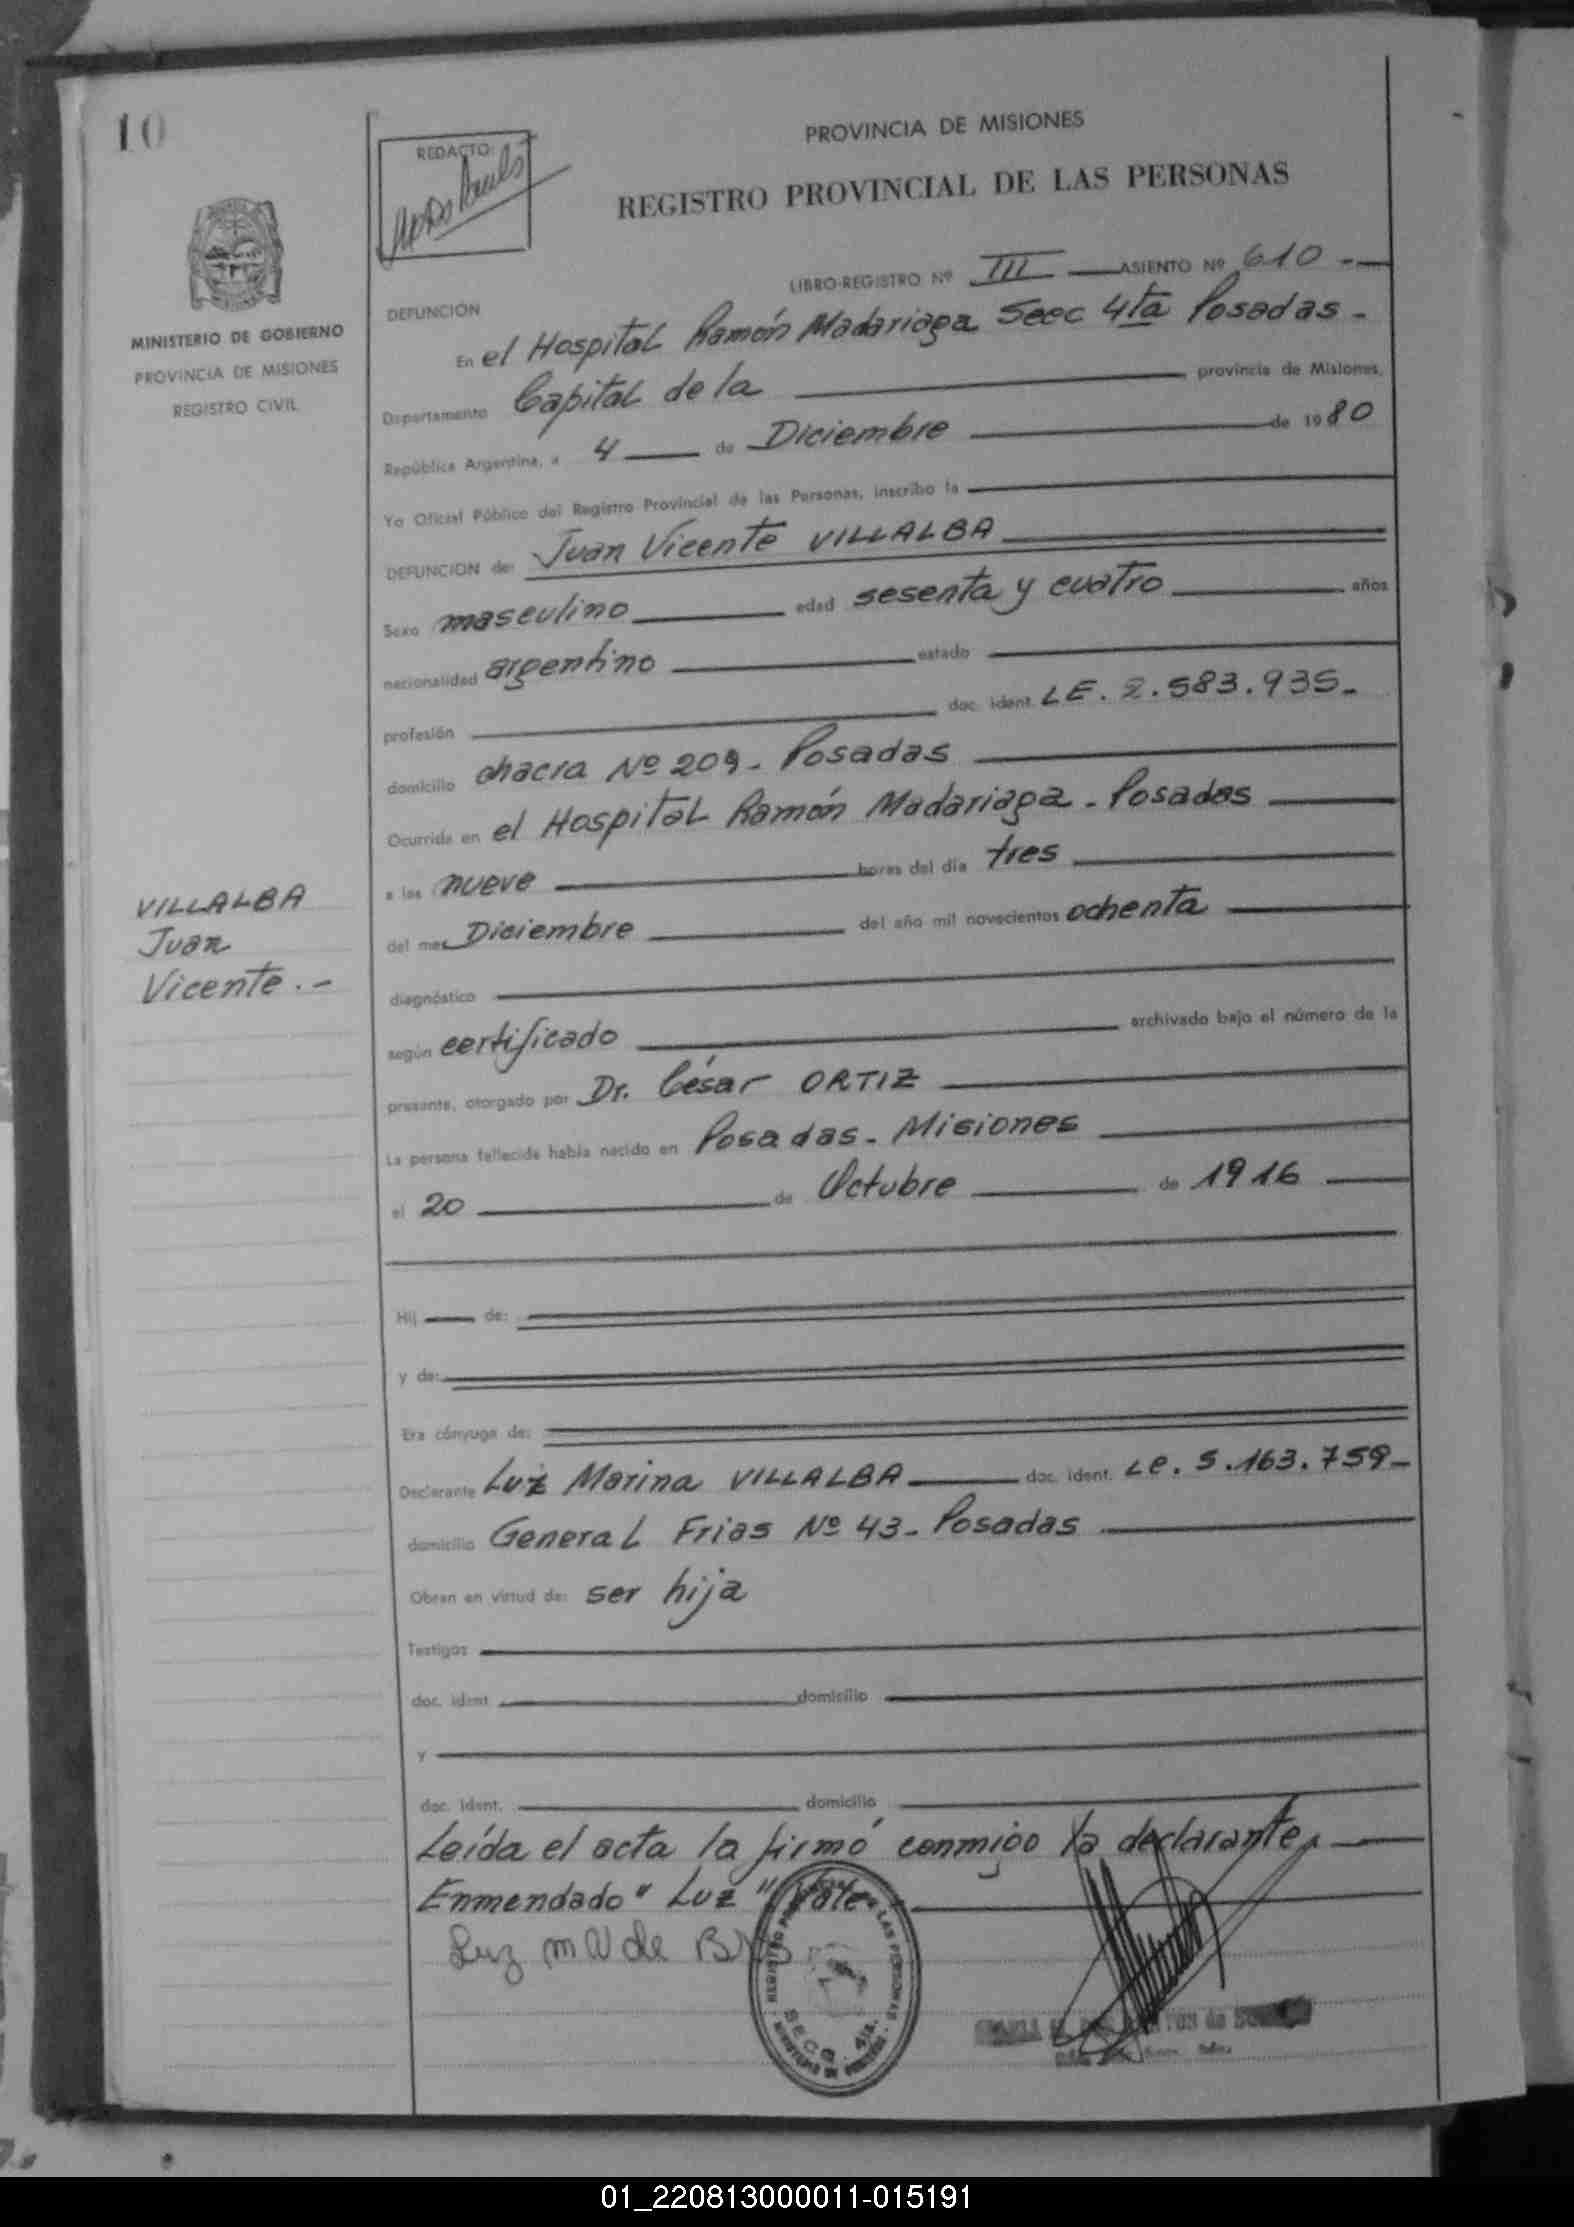 10
REDACTO:
PROVINCIA DE MISIONES
REGISTRO PROVINCIAL DE LAS PERSONAS
MINISTERIO DE GOBIERNO
PROVINCIA DE MISIONES
REGISTRO CIVIL
LIBRO-REGISTRO Nº III ASIENTO Nº 610
DEFUNCIÓN
En el Hospital Ramón Madariaga Secc 4ta Posadas.
Departamento Capital de la provincia de Misiones,
República Argentina, a 4 de Diciembre de 1980
Yo Oficial Público del Registro Provincial de las Personas, inscribo la
DEFUNCION de: Juan Vicente VILLALBA
Sexo masculino edad sesenta y cuatro años
nacionalidad argentino estado
profesión doc. ident. LE. 2.583.935.
domicilio chacra Nº 209. Posadas
Ocurrida en el Hospital Ramón Madariaga. Posadas
a las nueve horas del día tres
del mes Diciembre del año mil novecientos ochenta
VILLALBA
Juan
Vicente.-
diagnóstico
según certificado archivado bajo el número de la
presente, otorgado por Dr. César ORTIZ
La persona fallecida había nacido en Posadas. Misiones
el 20 de Octubre de 1916
Hij de:
y de:
Era cónyuge de:
Declarante Luz Marina VILLALBA doc. ident. LE. 5.163.759
domicilio General Frias Nº 43. Posadas
Obran en virtud de: ser hija
Testigos
doc. ident. domicilio
y
doc. ident. domicilio
Leída el acta la firmó conmigo la declarante.
Enmendado "Luz" Vale.
Luz m V de
SECC. 4ta.
01_220813000011-015191